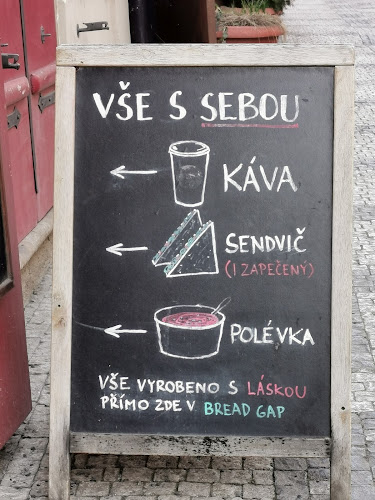 VŠE S SEBOU
KÁVA
SENDVIČ
(I ZAPEČENÝ)
POLÉVKA
VŠE VYROBENO S LÁSKOU
PŘÍMO ZDE V BREAD GAP